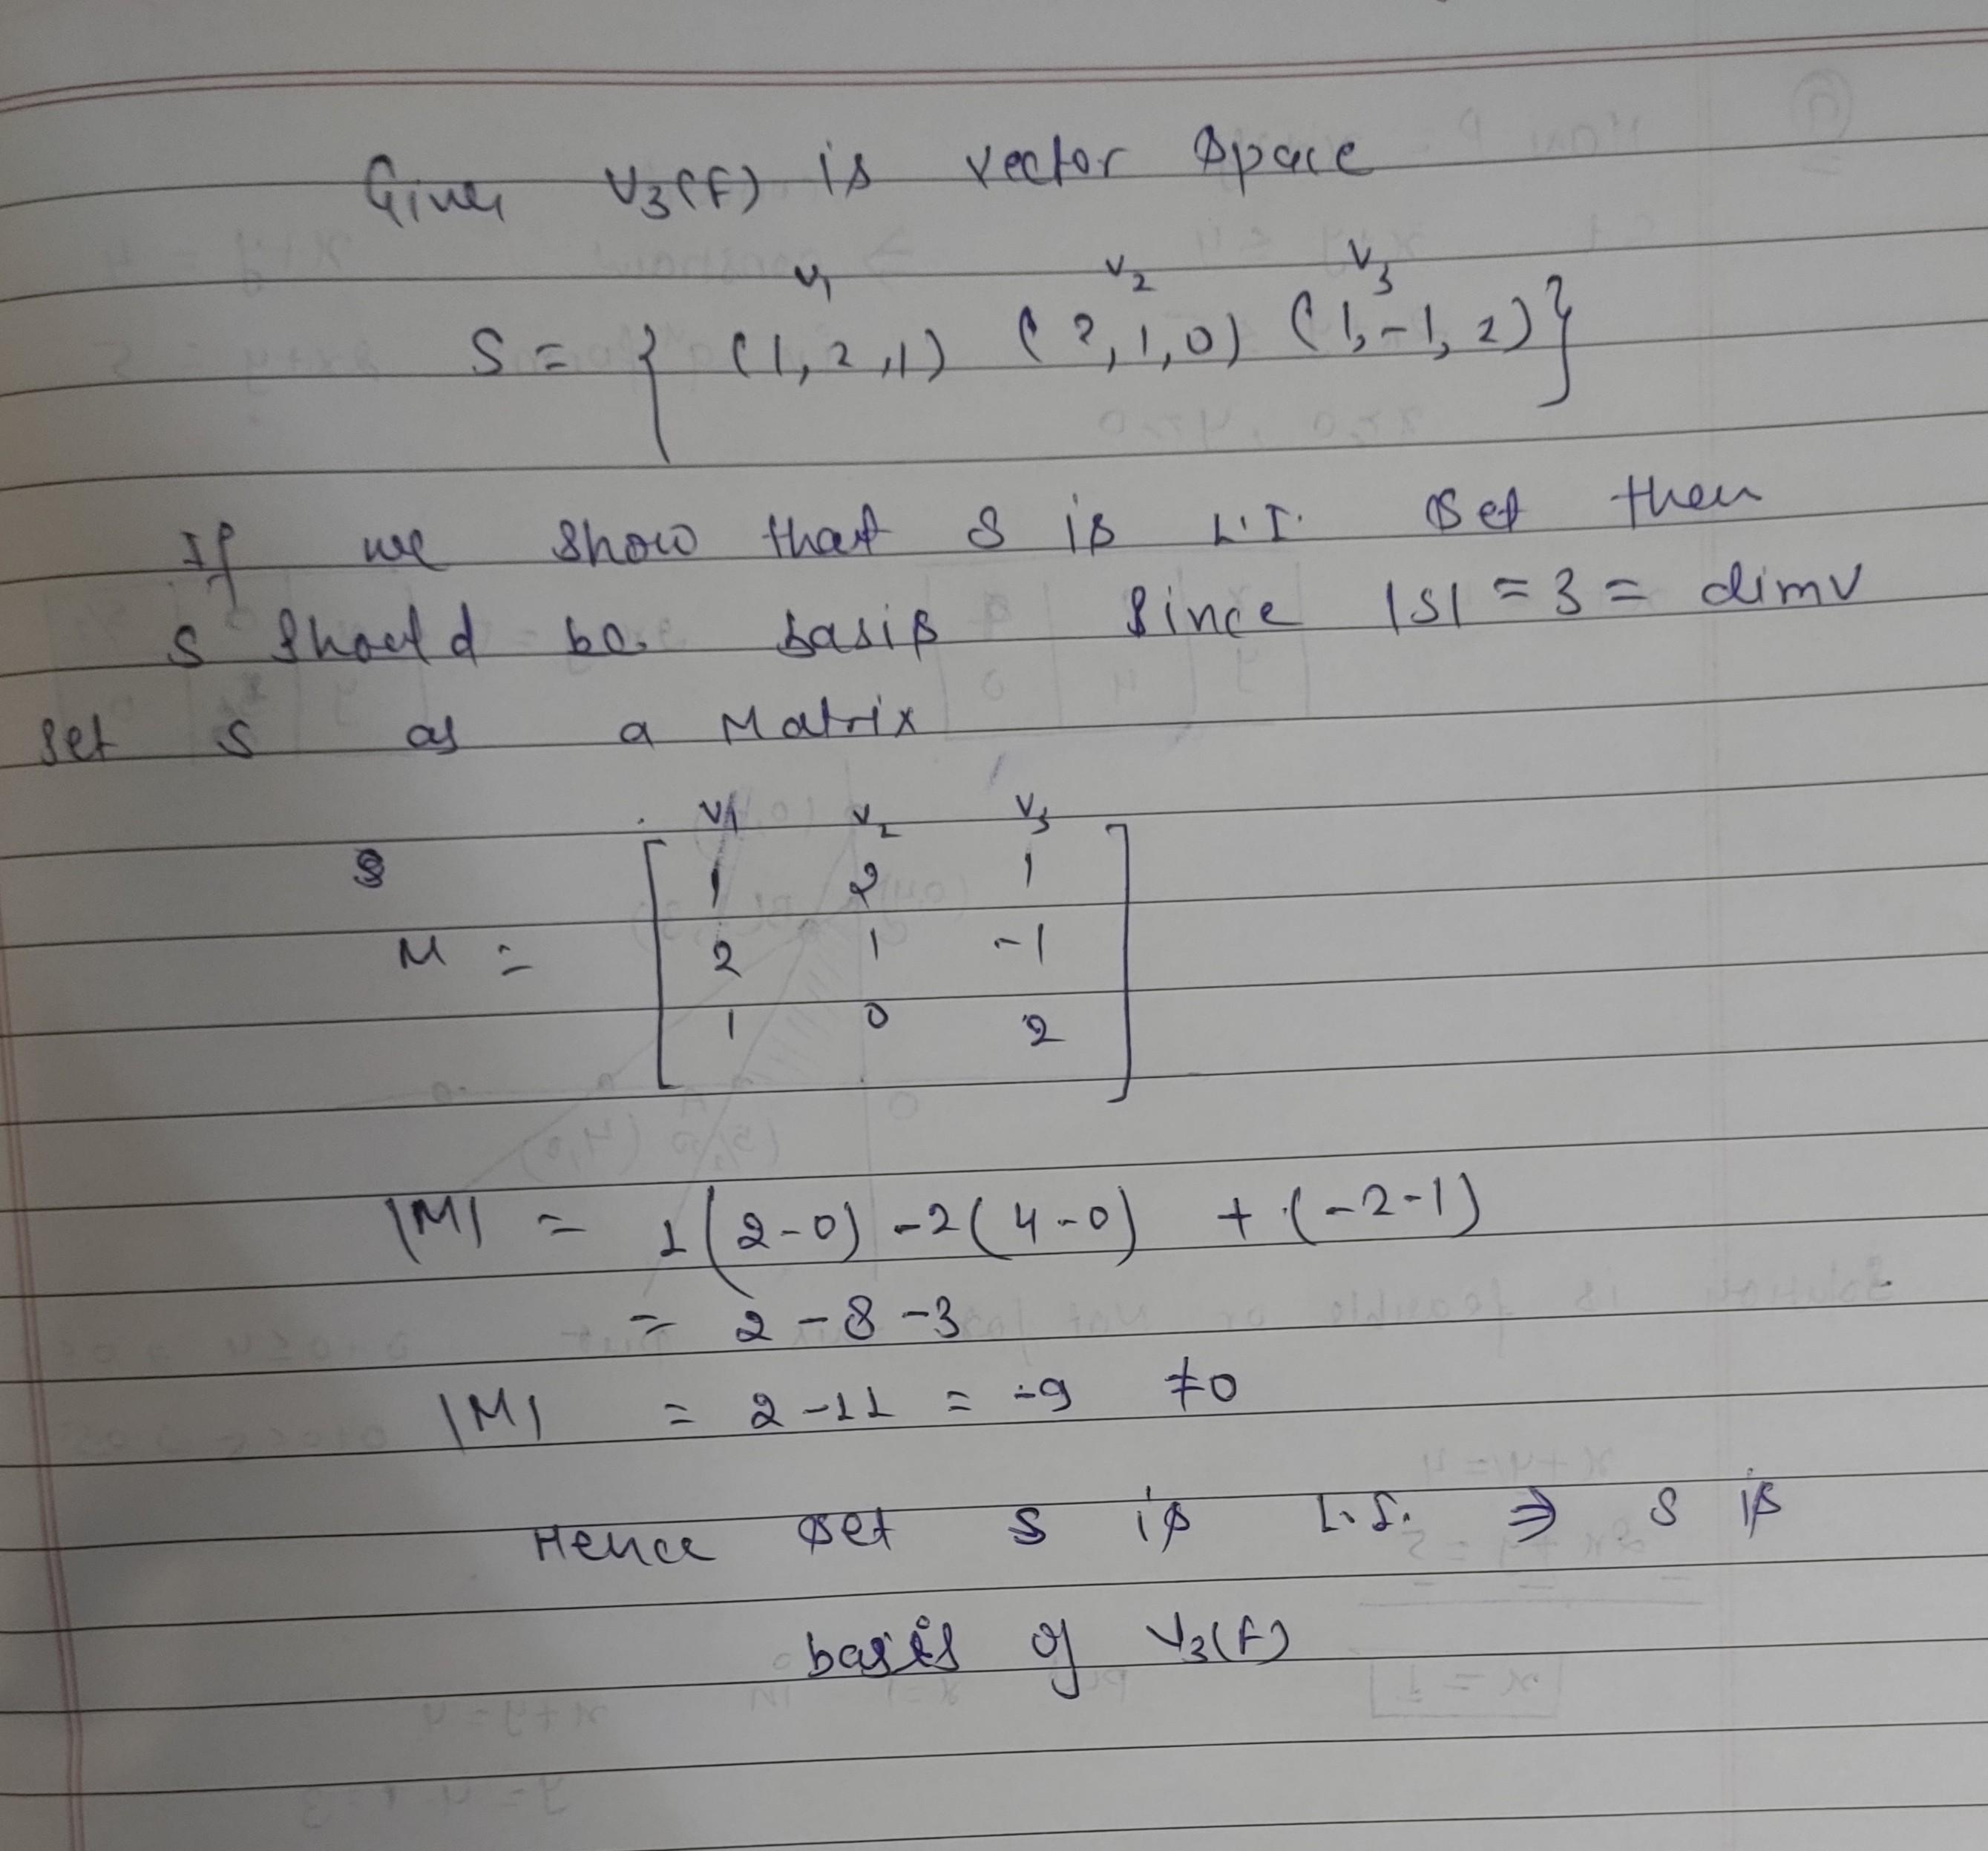 Given V3(F) is vector space
v1 v2 v3
S = { (1, 2, 1) (2, 1, 0) (1, -1, 2) }
If we show that S is L.I. set then
S should be basis since |S| = 3 = dimV
set S as a Matrix
v1 v2 v3
1 2 1
M = 2 1 -1
1 0 2
|M| = 1(2-0) -2(4-0) + (-2-1)
= 2 - 8 - 3
|M| = 2 - 11 = -9 ≠0
Hence set S is L.I. ⇒ S is
basis of V3(F)